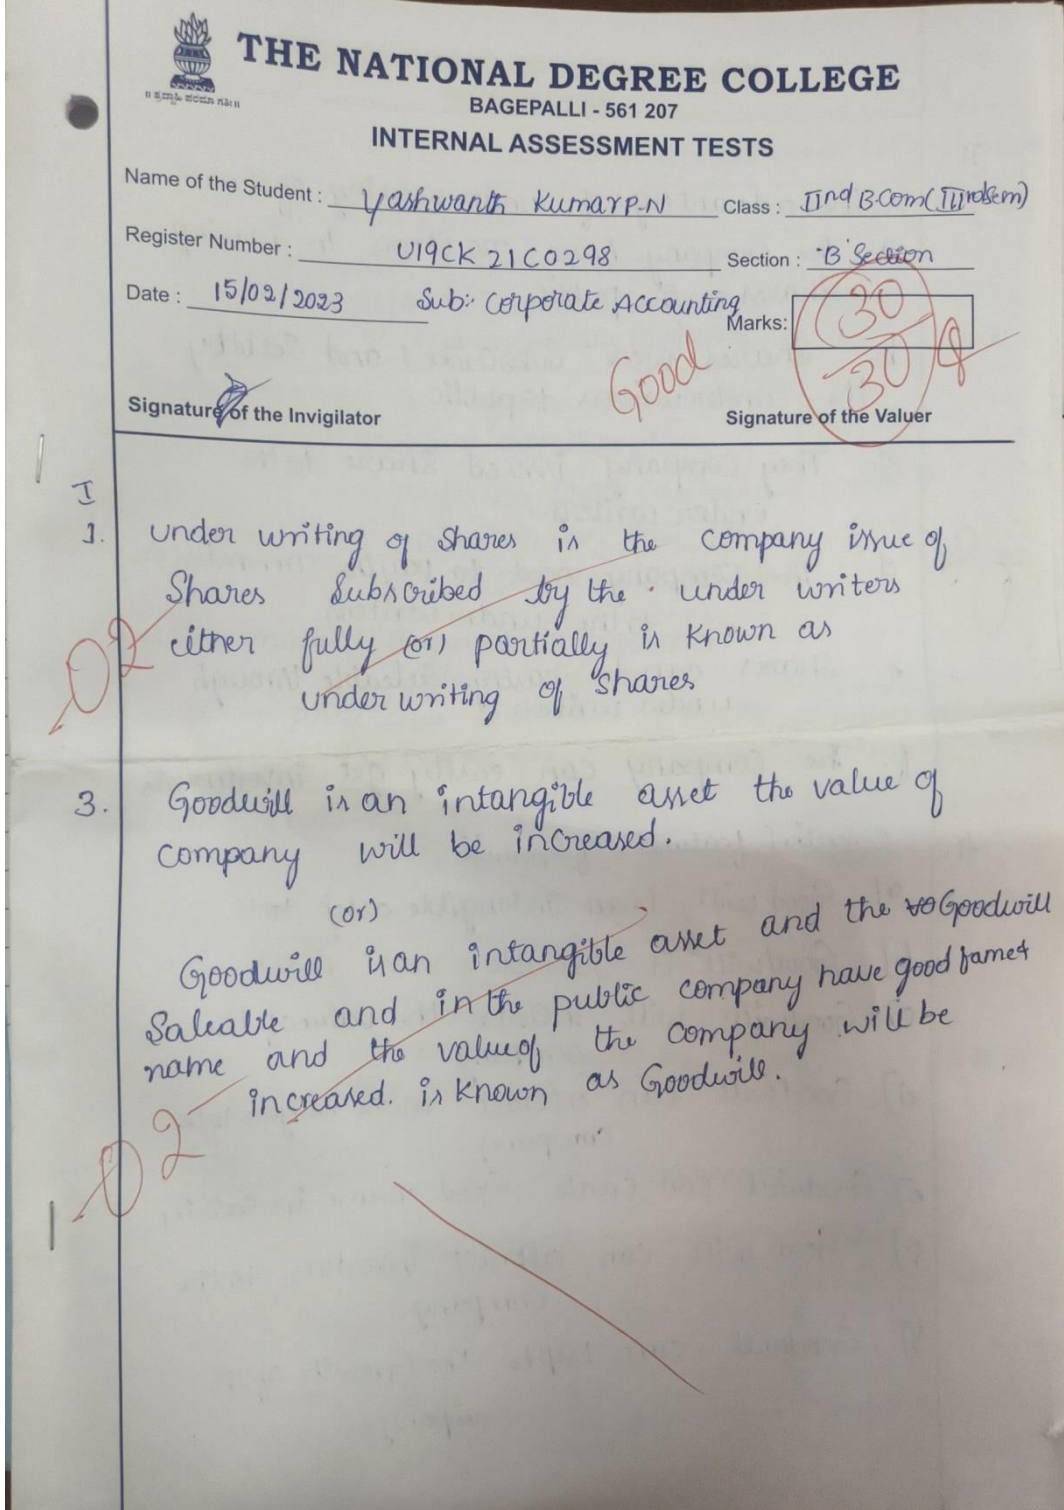 THE NATIONAL DEGREE COLLEGE
BAGEPALLI - 561 207
INTERNAL ASSESSMENT TESTS
Name of the Student : Yashwanth Kumar P.N Class : IInd B.Com (IIIrdsem)
Register Number : U19CK21C0298 Section : 'B' Section
Date : 15/02/2023 Sub: Corporate Accounting
Marks: 30/30
Good
Signature of the Invigilator Signature of the Valuer
I
1. Under writing of shares is the company issue of
Shares Subscribed by the under writers
either fully (or) partially is known as
under writing of shares
02
3. Goodwill is an intangible asset the value of
company will be increased.
(or)
Goodwill is an intangible asset and the Goodwill
Saleable and in the public company have good fame &
name and the value of the company will be
increased. is known as Goodwill.
02